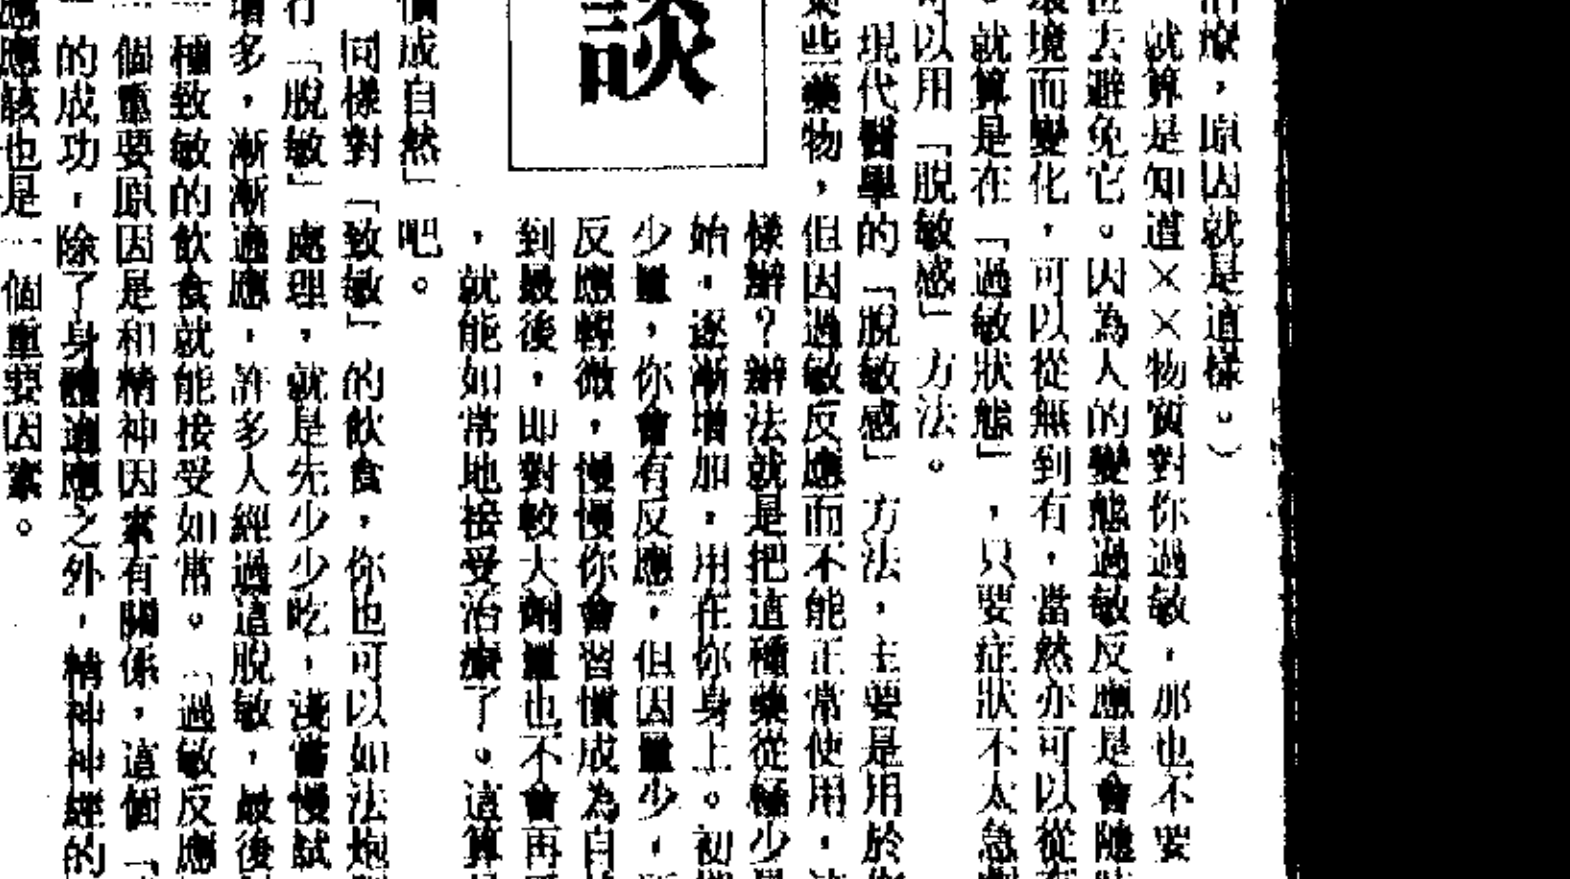 治療，原因就是這樣。）
就算是知道××物質對你過敏，那也不要
去避免它。因為人的變態過敏反應是會隨
環境而變化，可以從無到有，當然亦可以從
。就算是在「過敏狀態」，只要症狀不太急
可以用「脫敏感」方法。
現代醫學的「脫敏感」方法，主要是用於
某些藥物，但因過敏反應而不能正常使用，
談
樣辦？辦法就是把這種藥從極少
始，逐漸增加，用在你身上。初
少量，你會有反應，但因量少，
反應輕微，慢慢你會習慣成為自
到最後，即對較大劑量也不會再
，就能如常地接受治療了。這算
慣成自然」吧。
同樣對「致敏」的飲食，你也可以如法炮
行「脫敏」處理，就是先少少吃，淺嘗慢試
增多，漸漸適應，許多人經過這脫敏，最後
一種致敏的飲食就能接受如常。「過敏反應
一個重要原因是和精神因素有關係，這個「
」的成功，除了身體適應之外，精神神經的
應該也是一個重要因素。